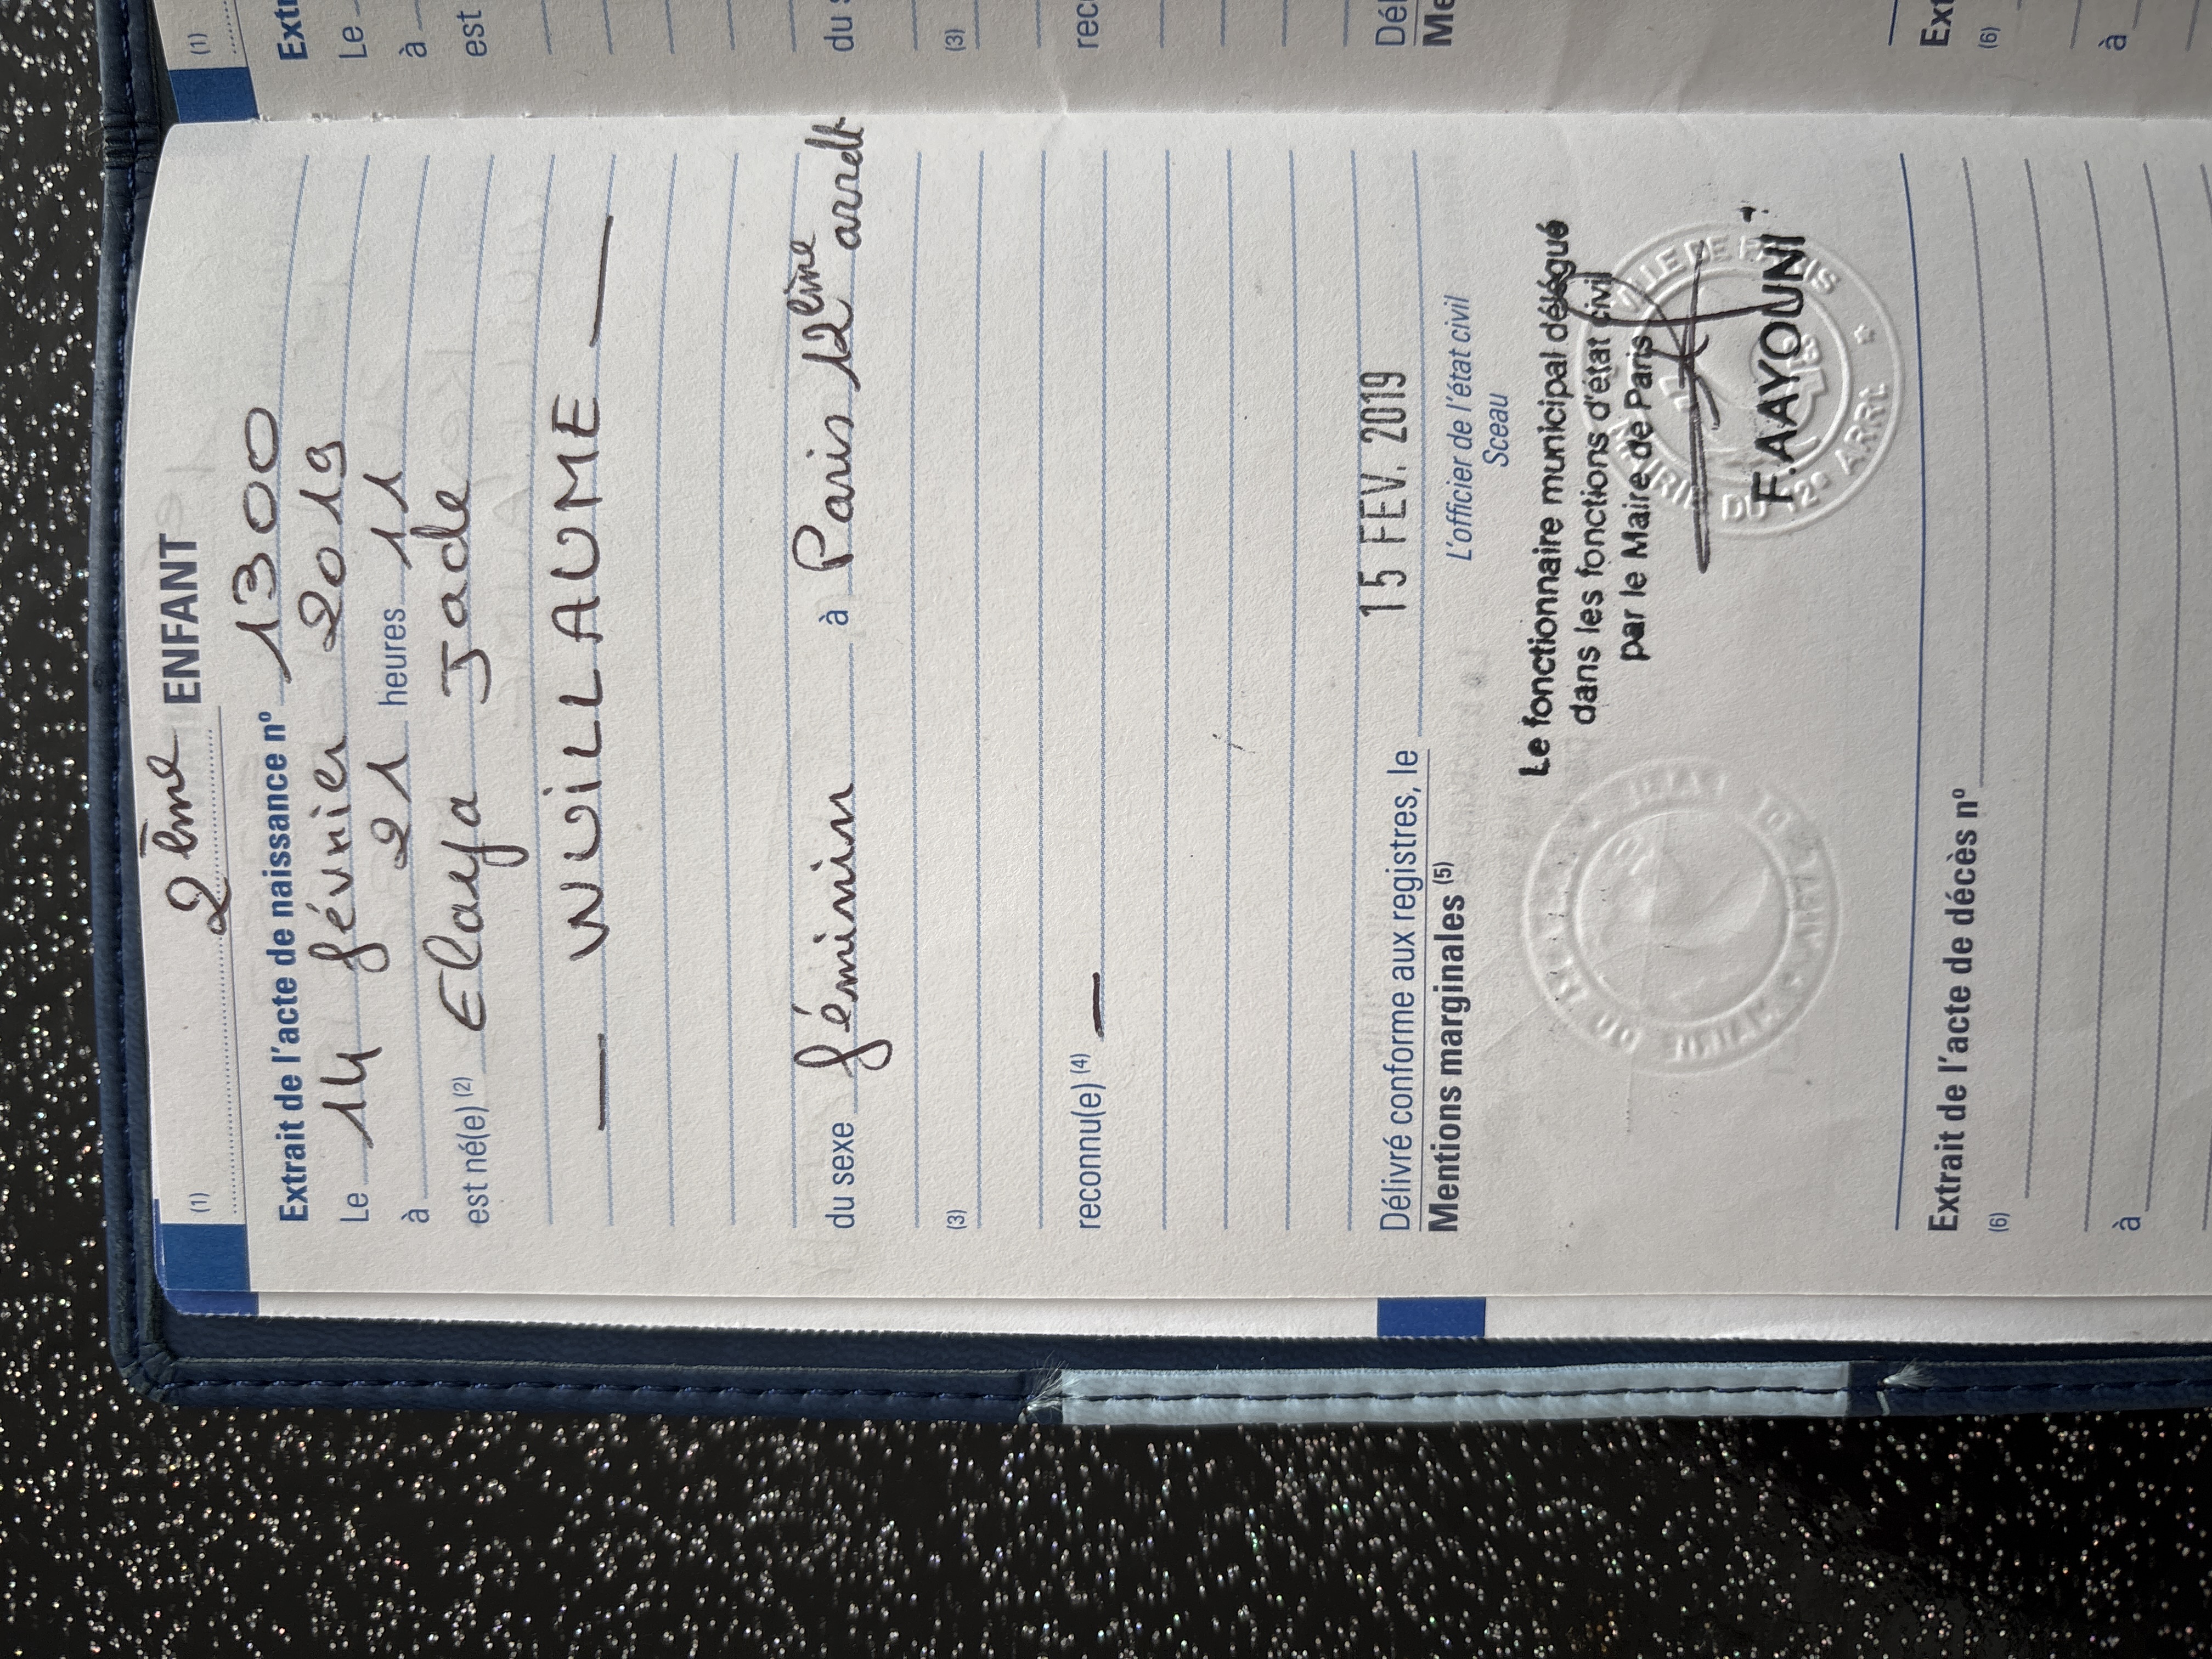 (1) 2ème ENFANT
Extrait de l'acte de naissance n° 1300
Le 14 février 2019
à 21 heures 11
est né(e) (2) Elaya Jade
— WUILLAUME —
du sexe féminin à Paris 12ème arrdt
(3)
reconnu(e) (4) —
Délivré conforme aux registres, le 15 FEV. 2019
Mentions marginales (5)
L'officier de l'état civil
Sceau
Le fonctionnaire municipal délégué
dans les fonctions d'état civil
par le Maire de Paris
F. AAYOUNI
VILLE DE PARIS
MAIRIE DU 12e ARRt
Extrait de l'acte de décès n°
(6)
à
(1)
Extr
Le
à
est
du s
(3)
rec
Dél
Me
Ext
(6)
à